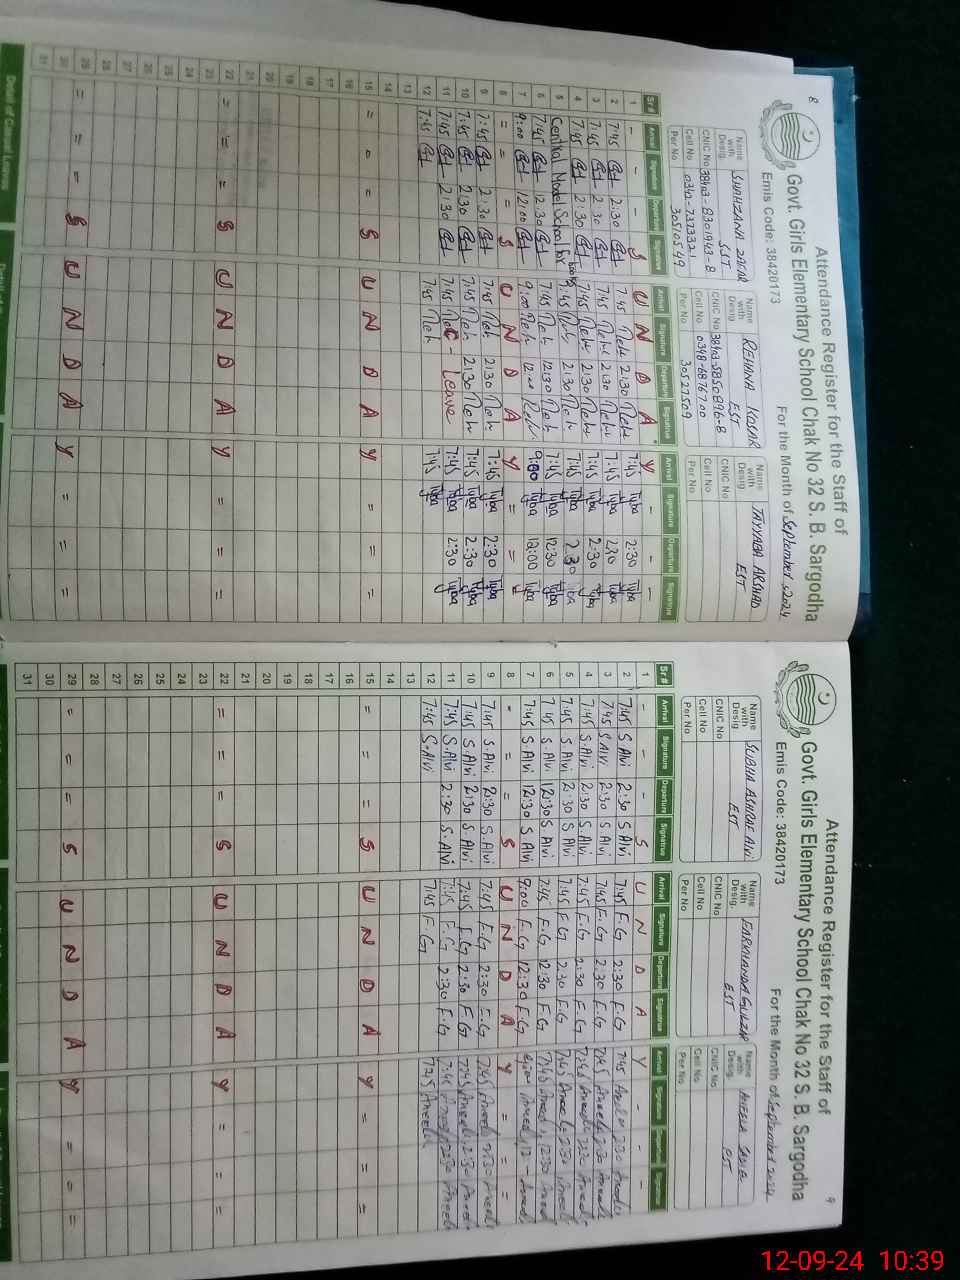 8
Attendance Register for the Staff of
Govt. Girls Elementary School Chak No 32 S. B. Sargodha
Emis Code: 38420173 For the Month of September, 2024
Name with Desig. SHAHZANA ZAFAR SST
CNIC No 38403-8301943-8
Cell No 0342-7373321
Per No 30510549
Name with Desig. REHANA KOSAR EST
CNIC No 38403-5850896-8
Cell No 0348-6876700
Per No 30527509
Name with Desig. TAYYABA ARSHAD EST
CNIC No
Cell No
Per No
Sr # Arrival Signature Departure Signatrue Arrival Signature Departure Signatrue Arrival Signature Departure Signatrue
1 - - - S U N D A Y - - -
2 7:45 2:30 7:45 Reh 2:30 Reh 7:45 Tyba 2:30 Tyba
3 7:45 2:30 7:45 Reh 2:30 Reh 7:45 Tyba 2:30 Tyba
4 7:45 2:30 7:45 Reh 2:30 Reh 7:45 Tyba 2:30 Tyba
5 Central Model School For 7:45 Reh 2:30 Reh 7:45 Tyba 2:30 Tyba
6 7:45 12:30 7:45 Reh 12:30 Reh 7:45 Tyba 12:30 Tyba
7 9:00 12:00 9:00 Reh 12:00 Reh 9:00 Tyba 12:00 Tyba
8 = = = S U N D A Y = =
9 7:45 2:30 7:45 Reh 2:30 Reh 7:45 Tyba 2:30 Tyba
10 7:45 2:30 7:45 Reh 2:30 Reh 7:45 Tyba 2:30 Tyba
11 7:45 2:30 7:45 C - Leave 7:45 Tyba 2:30 Tyba
12 7:45 7:45 Reh 7:45 Tyba
13
14
15 = = = S U N D A Y = = =
16
17
18
19
20
21
22 = = = S U N D A Y = = =
23
24
25
26
27
28
29 = = = S U N D A Y = = =
30
31
Detail of Casual Leaves
9
Attendance Register for the Staff of
Govt. Girls Elementary School Chak No 32 S. B. Sargodha
Emis Code: 38420173 For the Month of September 2024
Name with Desig. SUBHA ASHRAF Alvi EST
CNIC No
Cell No
Per No
Name with Desig. FARKHANDA GULZAR EST
CNIC No
Cell No
Per No
Name with Desig. ANEELA
CNIC No
Cell No
Per No
Sr # Arrival Signature Departure Signatrue Arrival Signature Departure Signatrue Arrival Signature Departure Signatrue
1 - - - S U N D A Y - - -
2 7:45 S Alvi 2:30 S Alvi 7:45 F.G 2:30 F.G 7:45 2:30
3 7:45 S Alvi 2:30 S Alvi 7:45 F.G 2:30 F.G 7:45 Aneela 2:30 Aneela
4 7:45 S.Alvi 2:30 S Alvi 7:45 F.G 2:30 F.G 7:45 Aneela 2:30 Aneela
5 7:45 S.Alvi 2:30 S Alvi 7:45 F.G 2:30 F.G 7:45 Aneela 2:30 Aneela
6 7:45 S Alvi 12:30 S Alvi 7:45 F.G 12:30 F.G 7:45 Aneela 12:30
7 7:45 S.Alvi 12:30 S Alvi 9:00 F.G 12:30 F.G
8 = = = S U N D A Y = = =
9 7:45 S.Alvi 2:30 S.Alvi 7:45 F.G 2:30 F.G 7:45 Aneela 2:30 Aneela
10 7:45 S.Alvi 2:30 S.Alvi 7:45 F.G 2:30 F.G 7:45 Aneela 2:30 Aneela
11 7:45 S.Alvi 2:30 S.Alvi 7:45 F.G 2:30 F.G 7:45 Aneela 2:30 Aneela
12 7:45 S.Alvi 7:45 F.G 7:45 Aneela
13
14
15 = = = S U N D A Y = = =
16
17
18
19
20
21
22 = = = S U N D A Y = = =
23
24
25
26
27
28
29 = = = S U N D A Y = = =
30
31
12-09-24 10:39